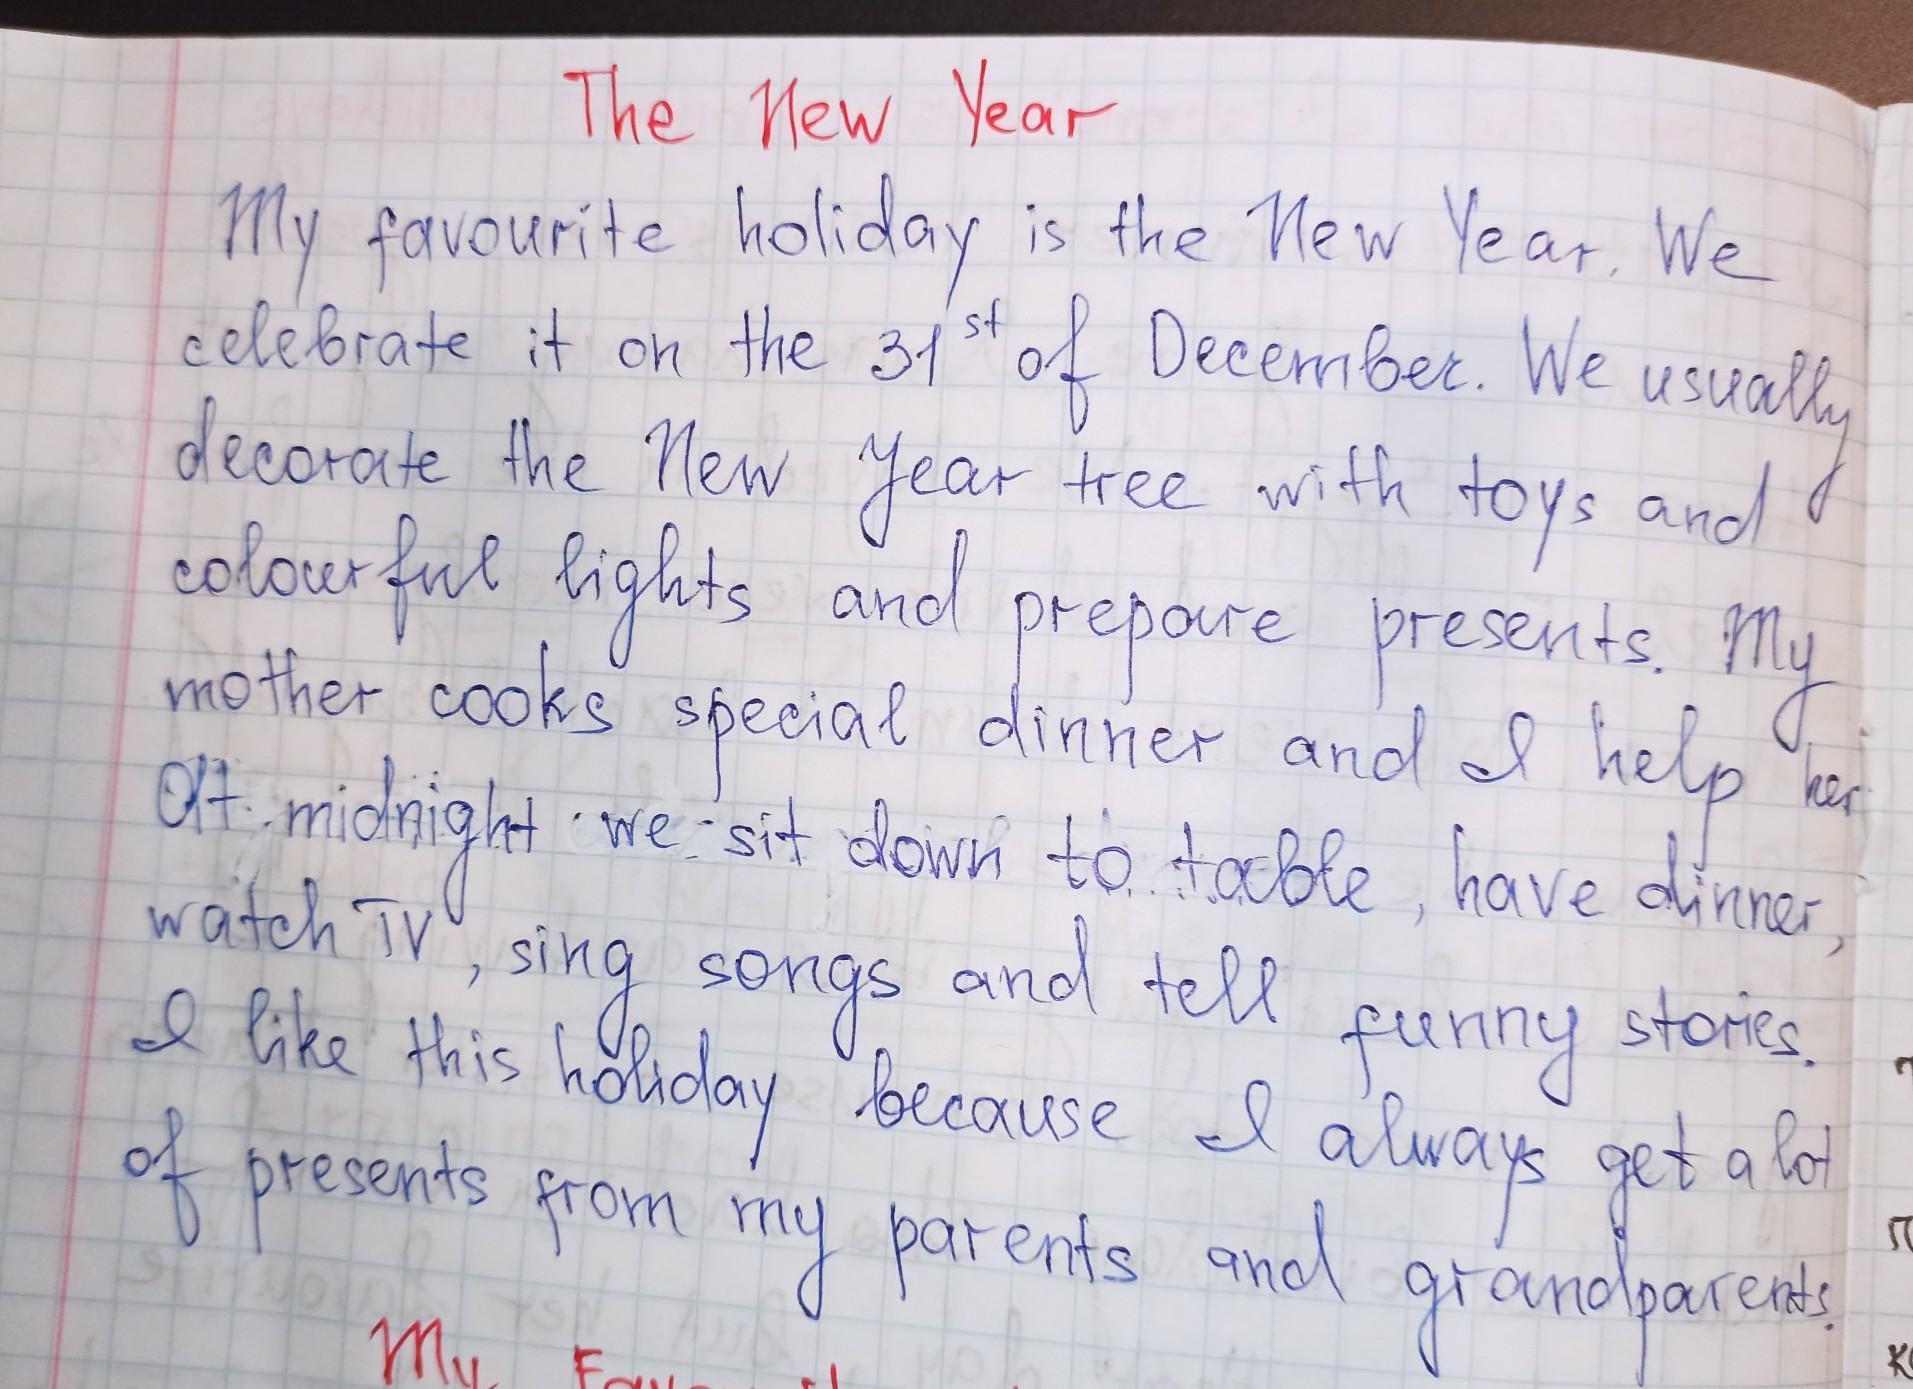 The New Year
My favourite holiday is the New Year. We
celebrate it on the 31st of December. We usually
decorate the New Year tree with toys and
colourful lights and prepare presents. My
mother cooks special dinner and I help her.
At midnight we sit down to table, have dinner,
watch TV, sing songs and tell funny stories.
I like this holiday because I always get a lot
of presents from my parents and grandparents.
My